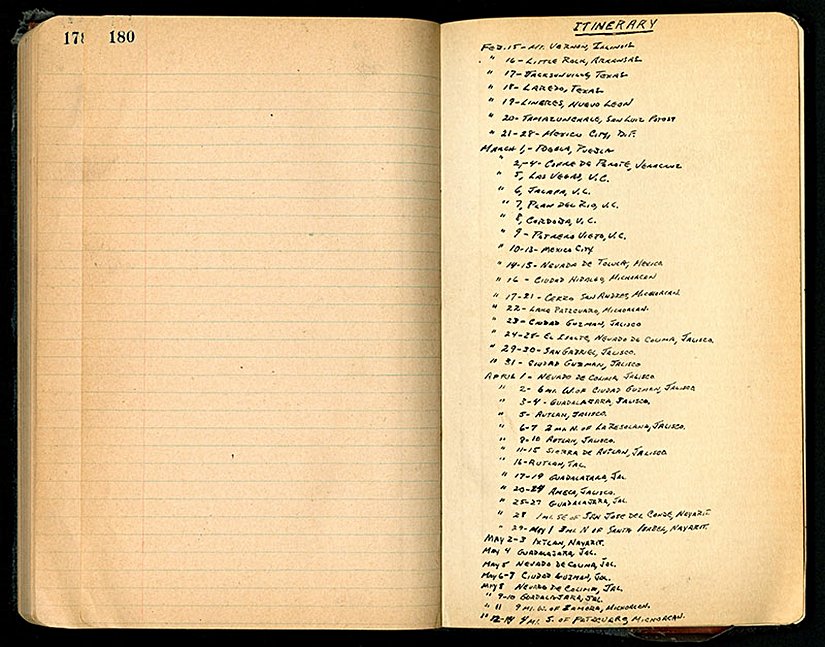 179 180
ITINERARY
FEB. 15 - MT. VERNON, ILLINOIS
" 16 - LITTLE ROCK, ARKANSAS
" 17 - JACKSONVILLE, TEXAS
" 18 - LAREDO, TEXAS
" 19 - LINARES, NUEVO LEON
" 20 - TAMAZUNCHALE, SAN LUIS POTOSI
" 21-28 - MEXICO CITY, D.F.
MARCH 1, - PUEBLA, PUEBLA
" 2,-4 - COFRE DE PEROTE, VERACRUZ
" 5, LAS VEGAS, V.C.
" 6, JALAPA, V.C.
" 7, PLAN DEL RIO, V.C.
" 8, CORDOBA, V.C.
" 9 - POTRERO VIEJO, V.C.
" 10-13 - MEXICO CITY
" 14-15 - NEVADO DE TOLUCA, MEXICO
" 16 - CIUDAD HIDALGO, MICHOACAN
" 17-21 - CERRO SAN ANDRES, MICHOACAN
" 22 - LAKE PATZCUARO, MICHOACAN.
" 23 - CIUDAD GUZMAN, JALISCO
" 24-28 - EL ISOTE, NEVADO DE COLIMA, JALISCO.
" 29-30 - SAN GABRIEL, JALISCO.
" 31 - CIUDAD GUZMAN, JALISCO
APRIL 1 - NEVADO DE COLIMA, JALISCO
" 2 - 6 mi. W. OF CIUDAD GUZMAN, JALISCO
" 3-4 - GUADALAJARA, JALISCO.
" 5 - AUTLAN, JALISCO.
" 6-7 2 mi. N. OF LA RESOLANA, JALISCO.
" 8-10 AUTLAN, JALISCO.
" 11-15 SIERRA DE AUTLAN, JALISCO
" 16 - AUTLAN, JAL.
" 17-19 GUADALAJARA, JAL
" 20-24 AMECA, JALISCO.
" 25-27 GUADALAJARA, JAL.
" 28 1 mi. SE OF SAN JOSE DEL CONDE, NAYARIT
" 29-MAY 1 3 mi. N OF SANTA ISABEL, NAYARIT.
MAY 2-3 IXTLAN, NAYARIT.
MAY 4 GUADALAJARA, JAL.
MAY 5 NEVADO DE COLIMA, JAL.
MAY 6-7 CIUDAD GUZMAN, JAL.
MAY 8 NEVADO DE COLIMA, JAL.
" 9-10 GUADALAJARA, JAL.
" 11 9 MI. W. OF ZAMORA, MICHOACAN.
" 12-14 4 MI. S. OF PATZCUARO, MICHOACAN.